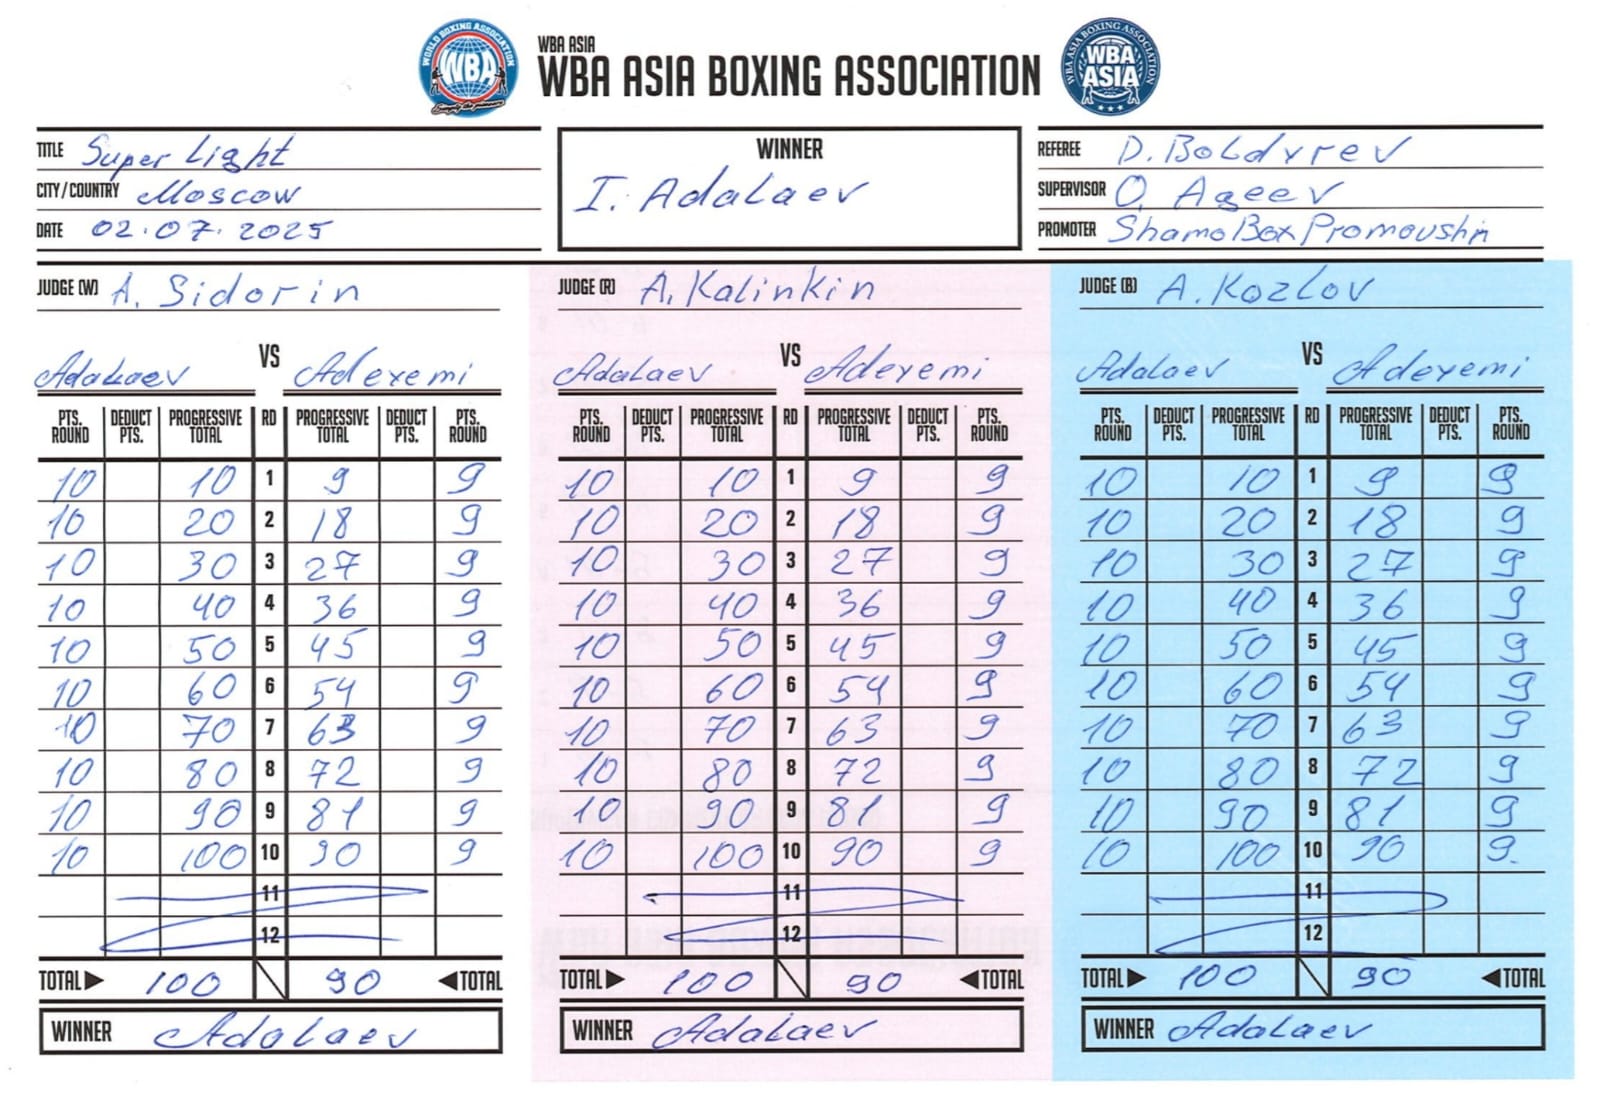 WORLD BOXING ASSOCIATION
WBA
Simply the pioneers
WBA ASIA
WBA ASIA BOXING ASSOCIATION
WBA ASIA BOXING ASSOCIATION
WBA
ASIA
TITLE Super Light
CITY/COUNTRY Moscow
DATE 02.07.2025
WINNER
I. Adalaev
REFEREE D. Boldyrev
SUPERVISOR O. Ageev
PROMOTER ShamoBoxPromoushn
JUDGE (W) A. Sidorin
Adalaev VS Adeyemi
PTS. ROUND DEDUCT PTS. PROGRESSIVE TOTAL RD PROGRESSIVE TOTAL DEDUCT PTS. PTS. ROUND
10 10 1 9 9
10 20 2 18 9
10 30 3 27 9
10 40 4 36 9
10 50 5 45 9
10 60 6 54 9
10 70 7 63 9
10 80 8 72 9
10 90 9 81 9
10 100 10 90 9
11
12
TOTAL 100 90 TOTAL
WINNER Adalaev
JUDGE (R) A. Kalinkin
Adalaev VS Adeyemi
PTS. ROUND DEDUCT PTS. PROGRESSIVE TOTAL RD PROGRESSIVE TOTAL DEDUCT PTS. PTS. ROUND
10 10 1 9 9
10 20 2 18 9
10 30 3 27 9
10 40 4 36 9
10 50 5 45 9
10 60 6 54 9
10 70 7 63 9
10 80 8 72 9
10 90 9 81 9
10 100 10 90 9
11
12
TOTAL 100 90 TOTAL
WINNER Adalaev
JUDGE (B) A. Kozlov
Adalaev VS Adeyemi
PTS. ROUND DEDUCT PTS. PROGRESSIVE TOTAL RD PROGRESSIVE TOTAL DEDUCT PTS. PTS. ROUND
10 10 1 9 9
10 20 2 18 9
10 30 3 27 9
10 40 4 36 9
10 50 5 45 9
10 60 6 54 9
10 70 7 63 9
10 80 8 72 9
10 90 9 81 9
10 100 10 90 9.
11
12
TOTAL 100 90 TOTAL
WINNER Adalaev